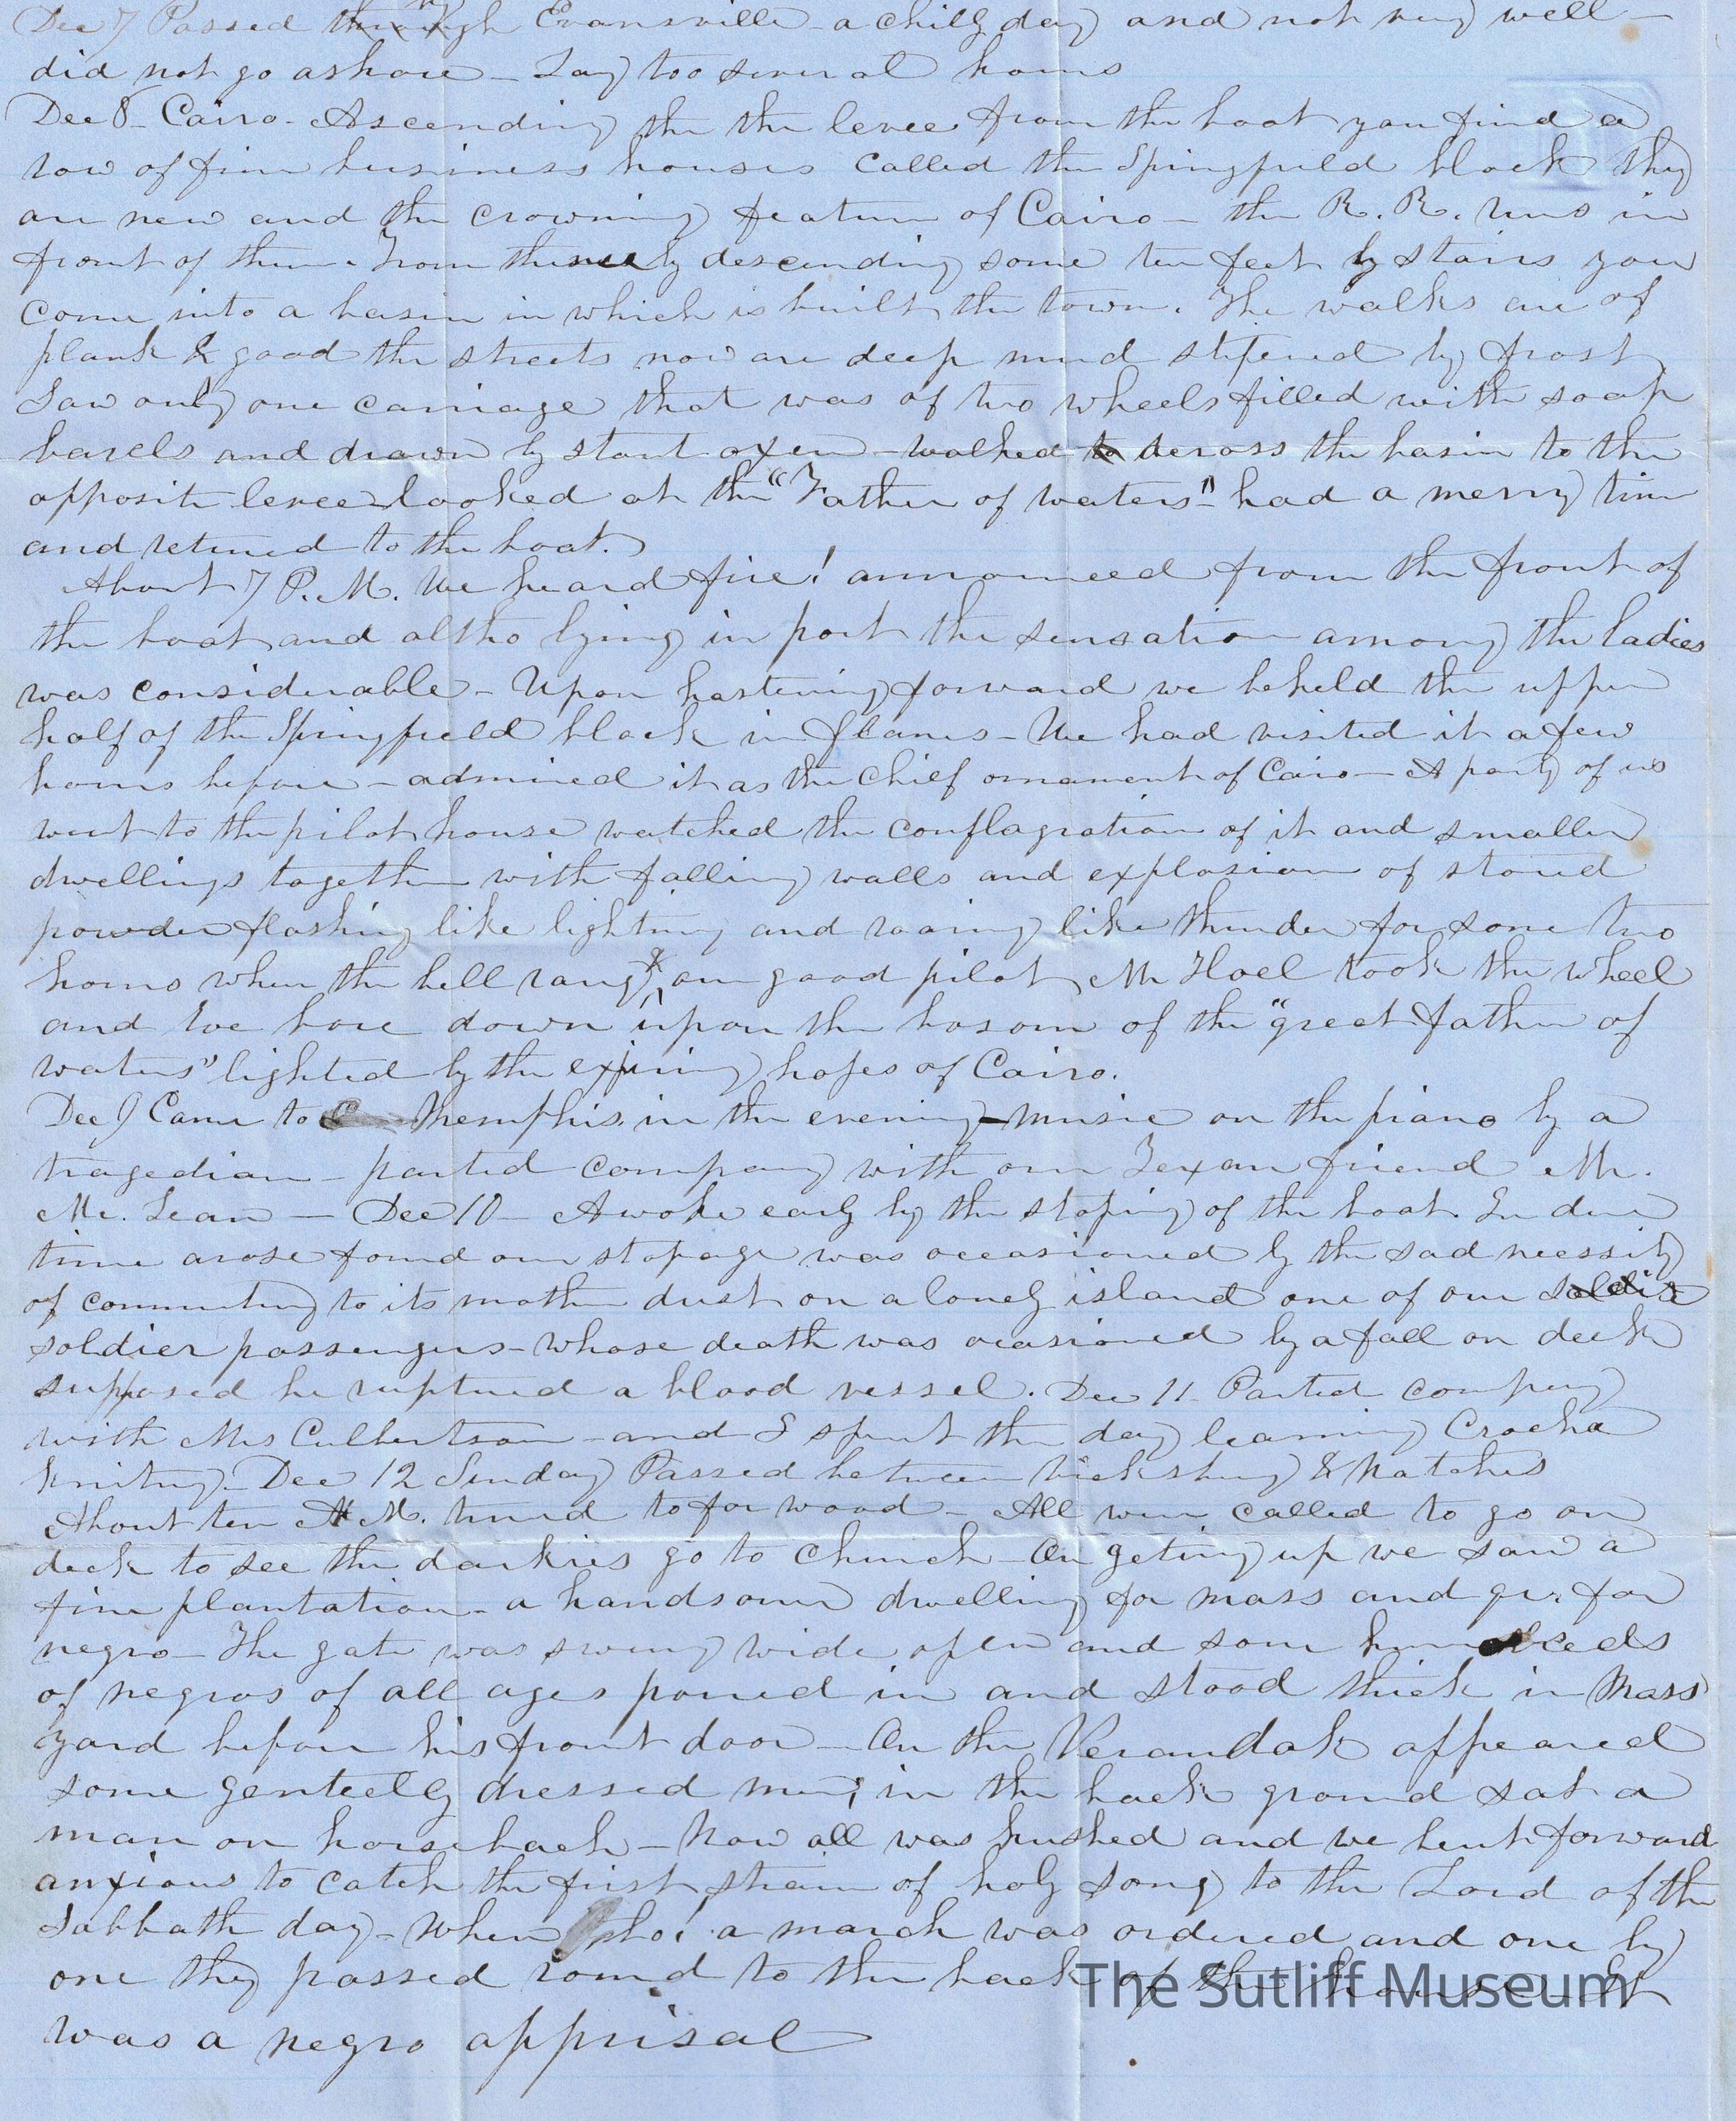 Dec 7 Passed through by Evansville - a chilly day and not very well -
did not go ashore - Lay too several hours
Dec 8 - Cairo - Ascending the the levee from the boat you find a
row of fine business houses called the Springfield block they
are new and the crowning feature of Cairo - the R. R. runs in
front of them. From descending some ten feet by stairs you
come into a basin in which is built the town. The walks are of
plank & good the streets now are deep mud stifened by frost
Saw only one carriage that was of two wheels filled with soap
barels and drawn by stout oxen - walked to across the basin to the
opposite levee looked at the "Father of waters" - had a merry time
and returned to the boat.
About 7 P. M. We heard fire! announced from the front of
the boat and altho lying in port the sensation among the ladies
was considerable - Upon hastening forward we beheld the upper
half of the Springfield block in flames - We had visited it a few
hours before - admired it as the chief ornament of Cairo - A party of us
went to the pilot house watched the conflagration of it and smaller
dwellings together with falling walls and explosion of stored
powder flashing like lightning and roaring like thunder for some two
hours when the bell rang & our good pilot Mr Hoel took the wheel
and we bore down upon the bosom of the "great father of
waters" lighted by the expiring hopes of Cairo.
Dec 9 Came to Memphis in the evening - music on the piano by a
tragedian - parted company with our Texan friend Mr.
Mc. Lean - Dec 10 - Awoke early by the stoping of the boat. In due
time arose found our stopage was occasioned by the sad necessity
of commiting to its mother dust on a lonely island one of our soldier
soldier passengers - whose death was ocasioned by a fall on deck
supposed he ruptured a blood vessel. Dec 11 Parted company
with Mrs Culbertson - and I spent the day learning Crocha
kniting. Dec 12 Sunday Passed between Vicksburg & Natches
About ten A. M. turned to for wood - All were called to go on
deck to see the darkies go to church - On geting up we saw a
fine plantation - a handsome dwelling for mass and qr. for
negro - The gate was swung wide open and some hundreds
of negros of all ages poured in and stood thick in Mass
yard before his front door - On the Verandah appeared
some genteely dressed men; in the back ground sat a
man on horseback - Now all was hushed and we bent forward
anxious to catch the first strain of holy song to the Lord of the
Sabbath day - when lo! a march was ordered and one by
one they passed round to the back of the house - It
was a negro apprisal
The Sutliff Museum